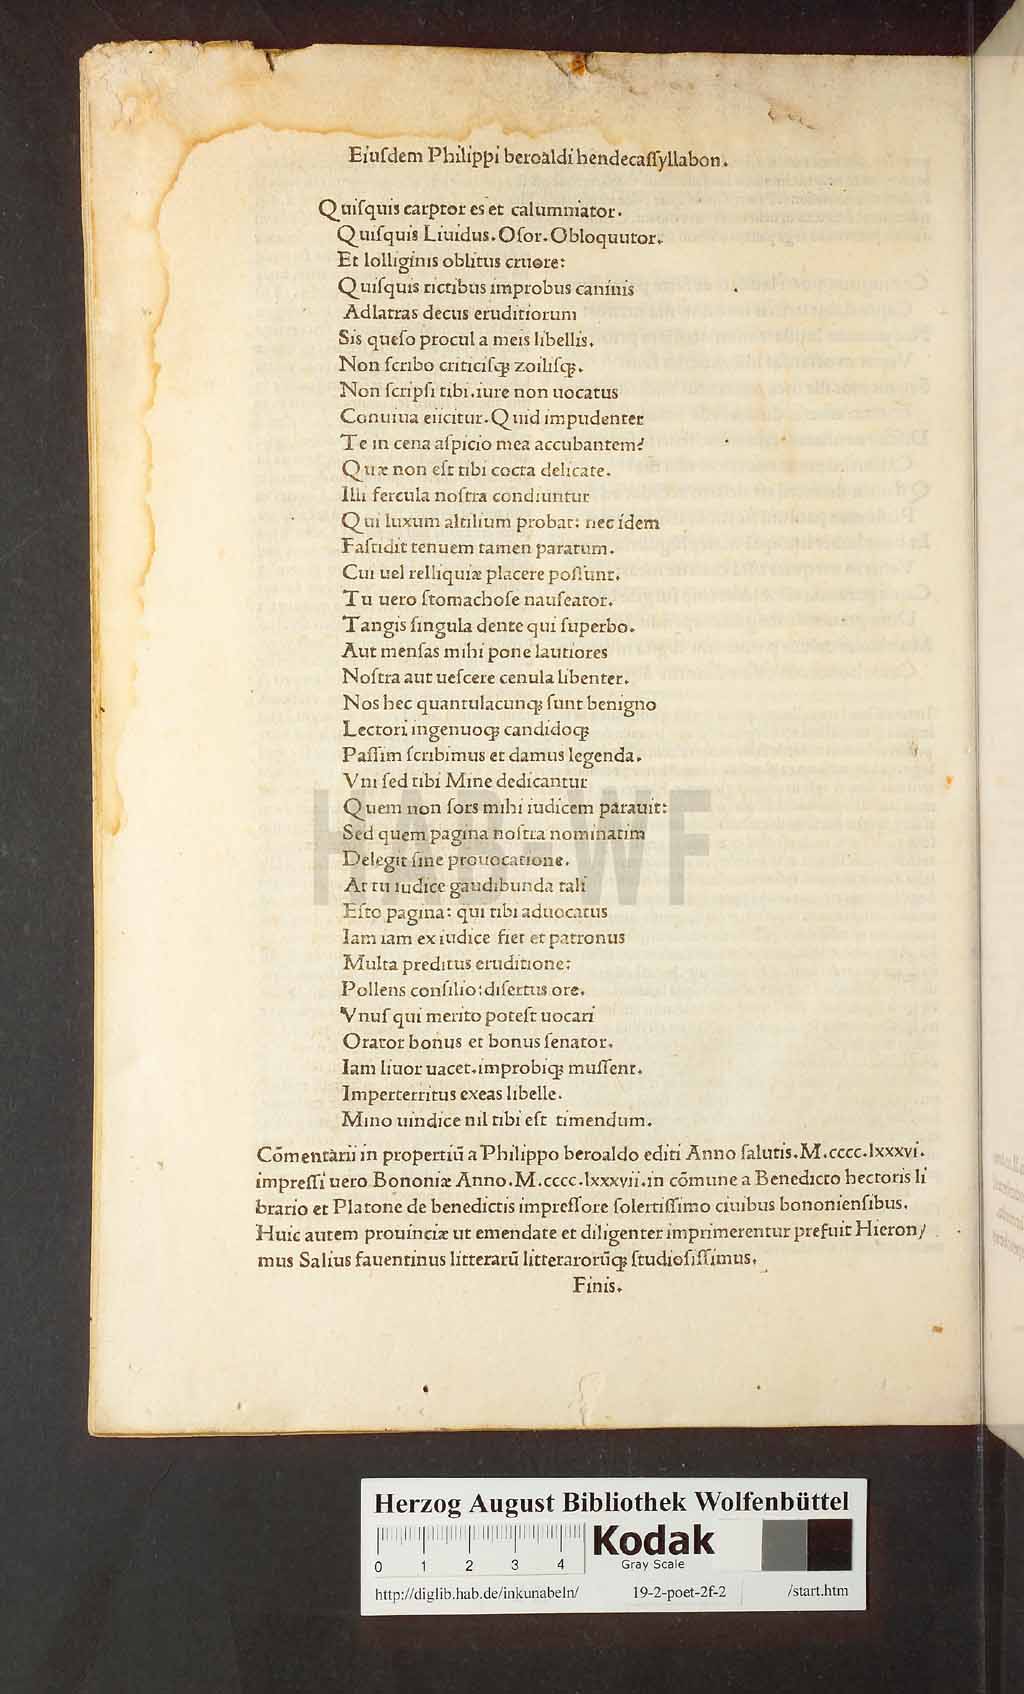 Eiuſdem Philippi beroaldi hendecaſſyllabon.
Quiſquis carptor es et calumniator.
Quiſquis Liuidus. Oſor. Obloquutor.
Et lolliginis oblitus cruore:
Quiſquis rictibus improbus caninis
Adlatras decus eruditiorum
Sis queſo procul a meis libellis.
Non ſcribo criticiſqꝫ zoiliſqꝫ.
Non ſcripſi tibi. iure non uocatus
Conuiua eiicitur. Quid impudenter
Te in cena aſpicio mea accubantem?
Quæ non eſt tibi cocta delicate.
Illi fercula noſtra condiuntur
Qui luxum altilium probat: nec idem
Faſtidit tenuem tamen paratum.
Cui uel relliquiæ placere poſſunt.
Tu uero ſtomachoſe nauſeator.
Tangis ſingula dente qui ſuperbo.
Aut menſas mihi pone lautiores
Noſtra aut ueſcere cenula libenter.
Nos hec quantulacunqꝫ ſunt benigno
Lectori ingenuoqꝫ candidoqꝫ
Paſſim ſcribimus et damus legenda.
Vni ſed tibi Mine dedicantur
Quem non ſors mihi iudicem parauit:
Sed quem pagina noſtra nominatim
Delegit ſine prouocatione.
At tu iudice gaudibunda tali
Eſto pagina: qui tibi aduocatus
Iam iam ex iudice fiet et patronus
Multa preditus eruditione:
Pollens conſilio: diſertus ore.
Vnuſ qui merito poteſt uocari
Orator bonus et bonus ſenator.
Iam liuor uacet. improbiqꝫ muſſent.
Imperterritus exeas libelle.
Mino uindice nil tibi eſt timendum.
Cōmentarii in propertiū a Philippo beroaldo editi Anno ſalutis. M.cccc.lxxxvi.
impreſſi uero Bononiæ Anno. M.cccc.lxxxvii. in cōmune a Benedicto hectoris li
brario et Platone de benedictis impreſſore ſolertiſſimo ciuibus bononienſibus.
Huic autem prouinciæ ut emendate et diligenter imprimerentur prefuit Hierony
mus Salius fauentinus litterarū litterarorūqꝫ ſtudioſiſſimus.
Finis.
HAB-WF
Herzog August Bibliothek Wolfenbüttel
0 1 2 3 4
Kodak
Gray Scale
http://diglib.hab.de/inkunabeln/ 19-2-poet-2f-2 /start.htm